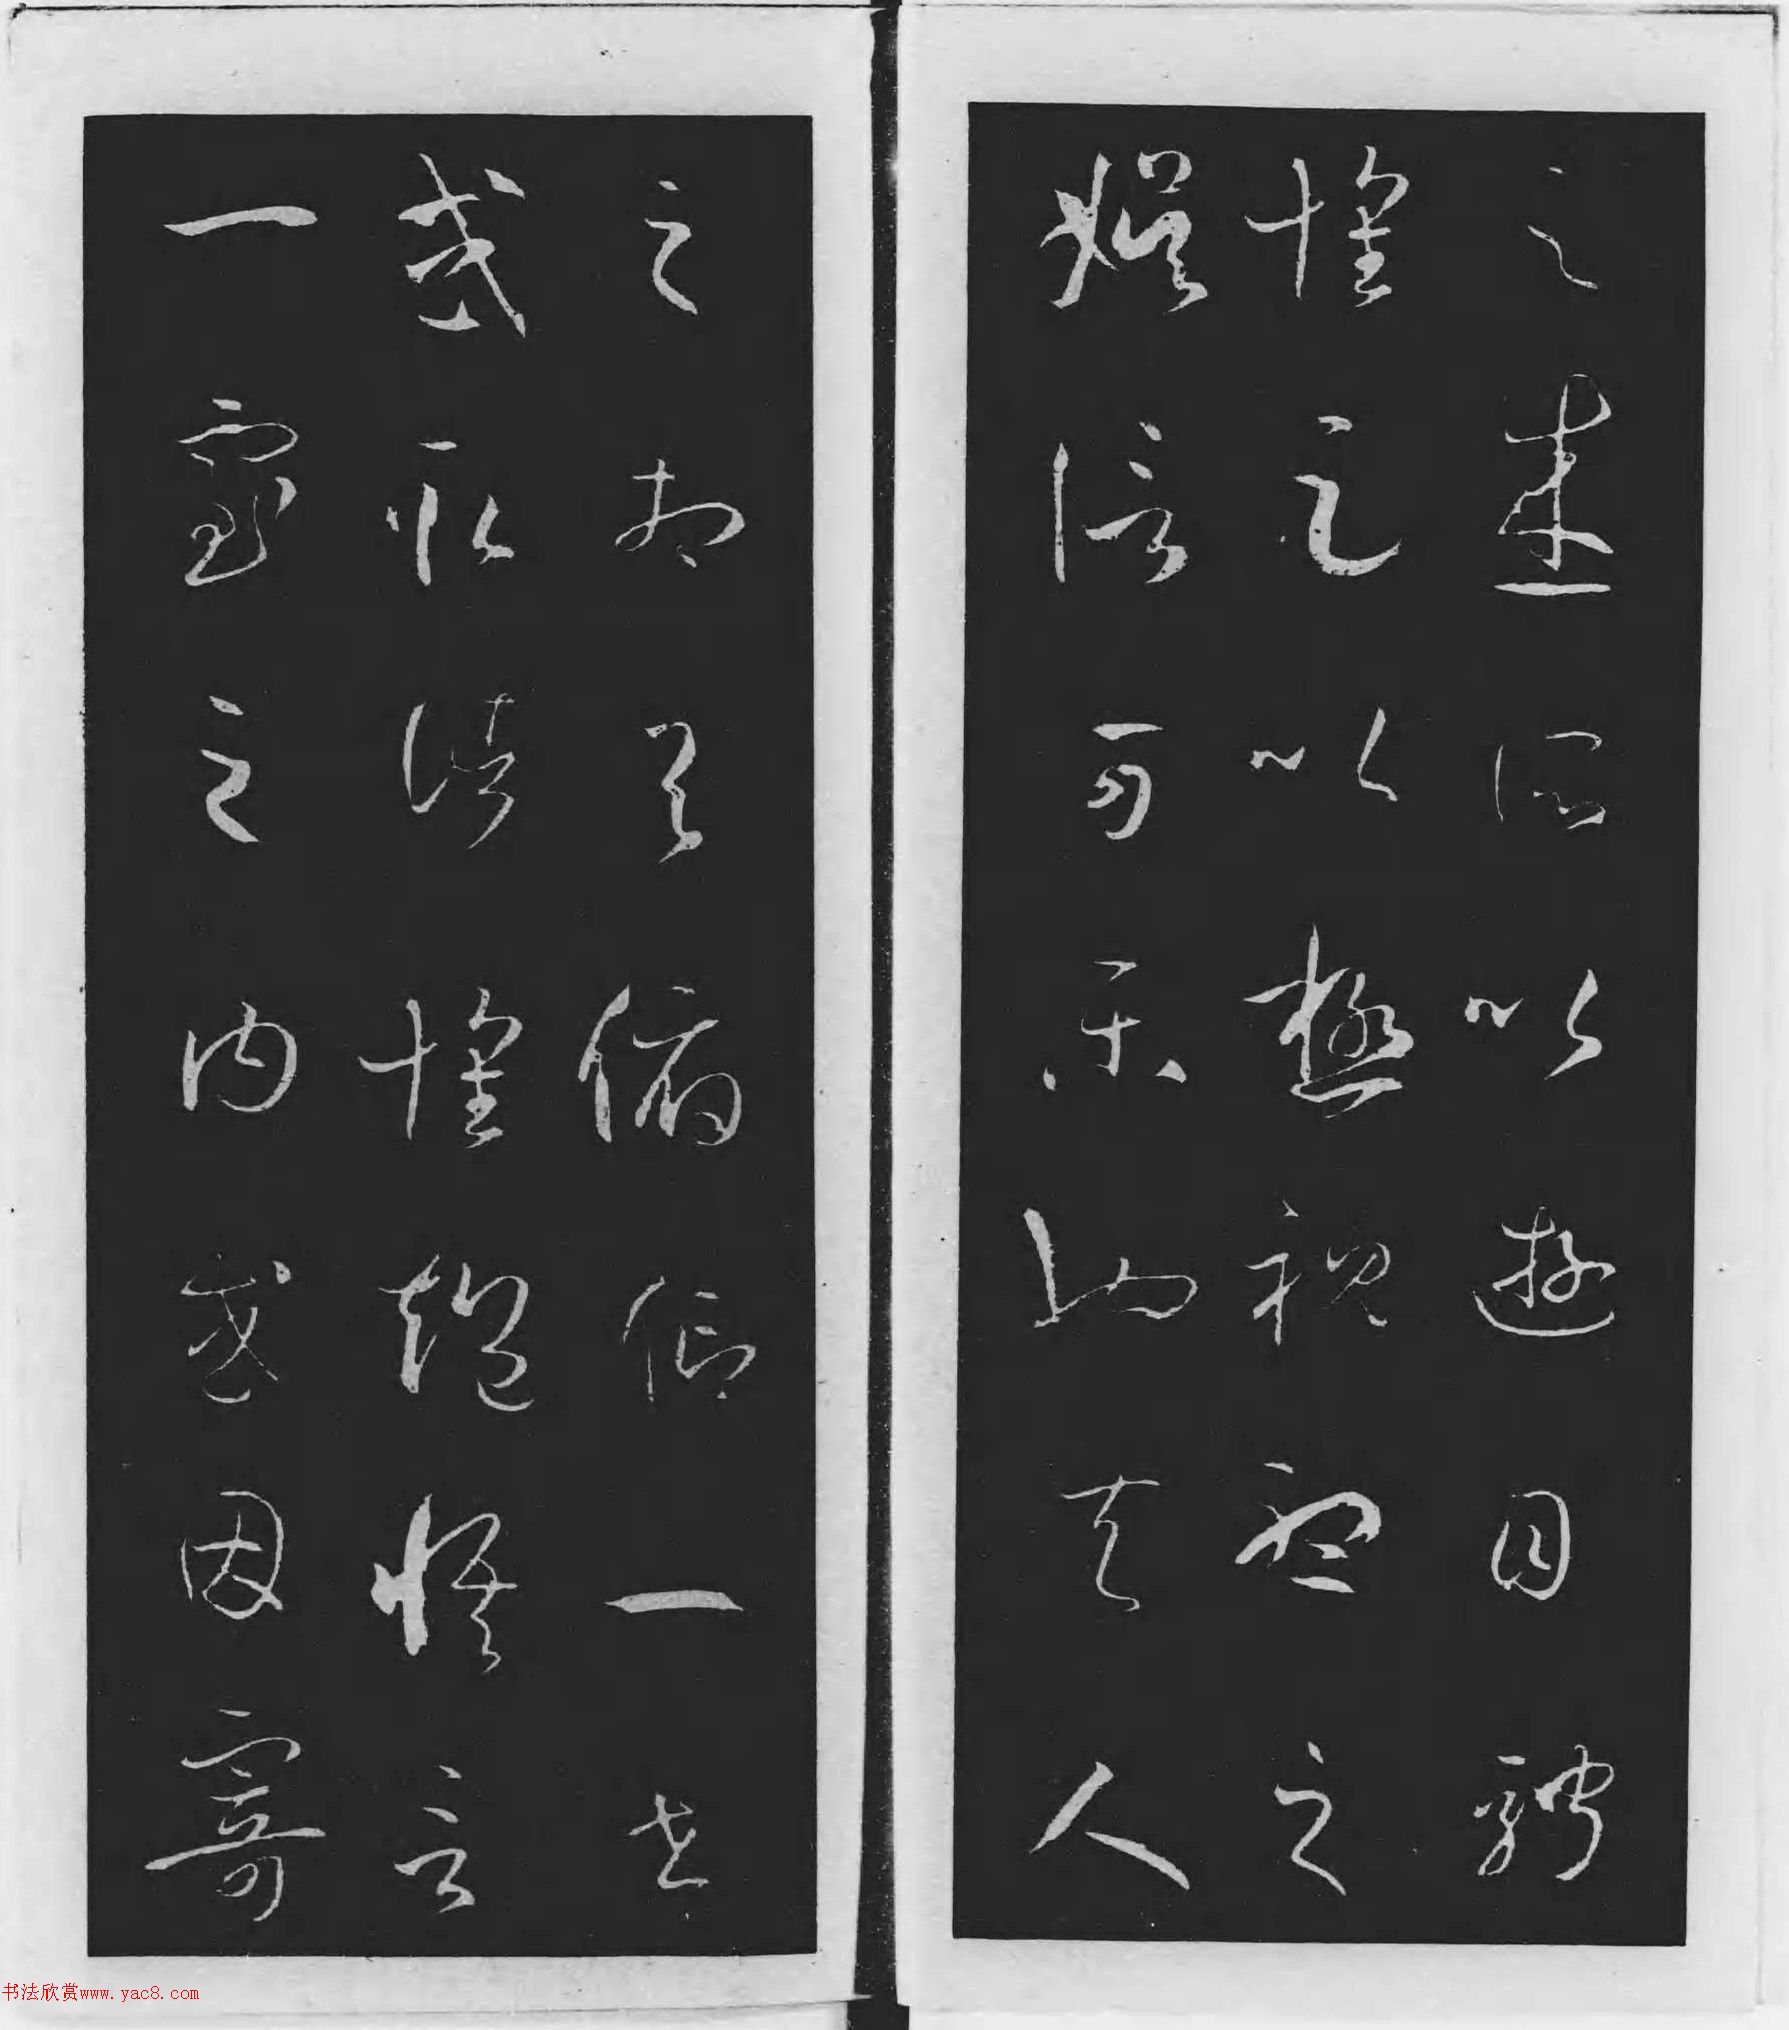 之盛所以遊目騁
懷足以極視聽之
娛信可樂也夫人
之相與俯仰一世
或取諸懷抱悟言
一室之內或因寄
书法欣赏www.yac8.com